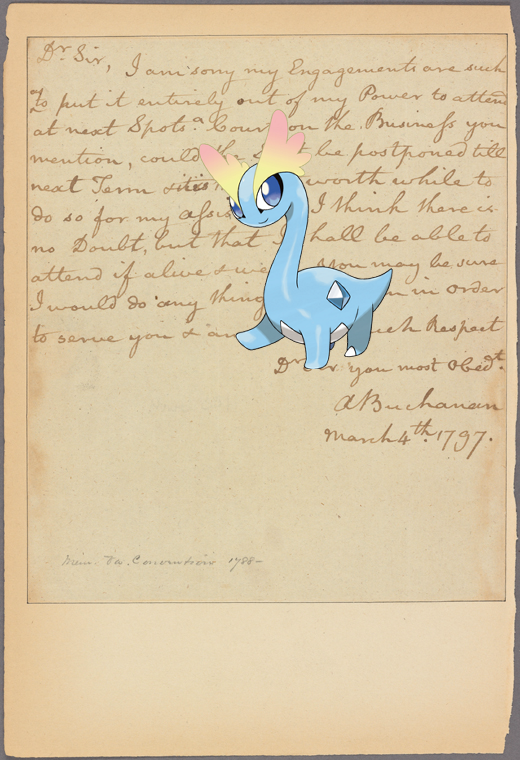 Dr. Sir,
I am sorry my Engagements are such
To put it entirely out of my Power to attend
at next Spots.a Cour on the Business you
mention, could the be postponed till
next Term worth while to
do so for my I think there is
no Doubt, but that hall be able to
attend if alive & we you may be sure
I would do any thing in order
to serve you & am uch Respect
Dr r you most Obedt.
ABuchanan
March 4th. 1797.
Mem. Va. Convention 1788-